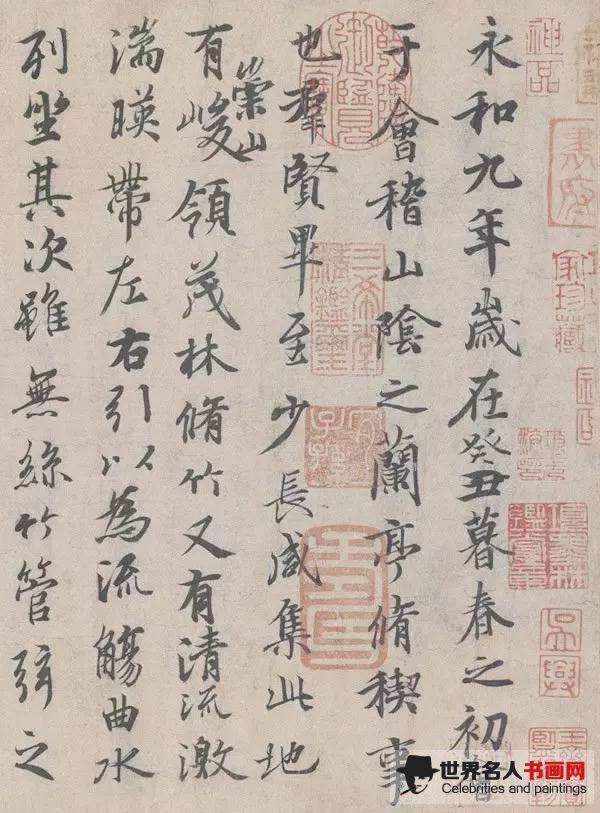 永和九年歲在癸丑暮春之初會
于會稽山陰之蘭亭脩稧事
也羣賢畢至少長咸集此地
有崇山峻領茂林脩竹又有清流激
湍暎帶左右引以為流觴曲水
列坐其次雖無絲竹管弦之
神品
三希堂
精鑑璽
宜子孫
吳興
世界名人书画网
Celebrities and paintings